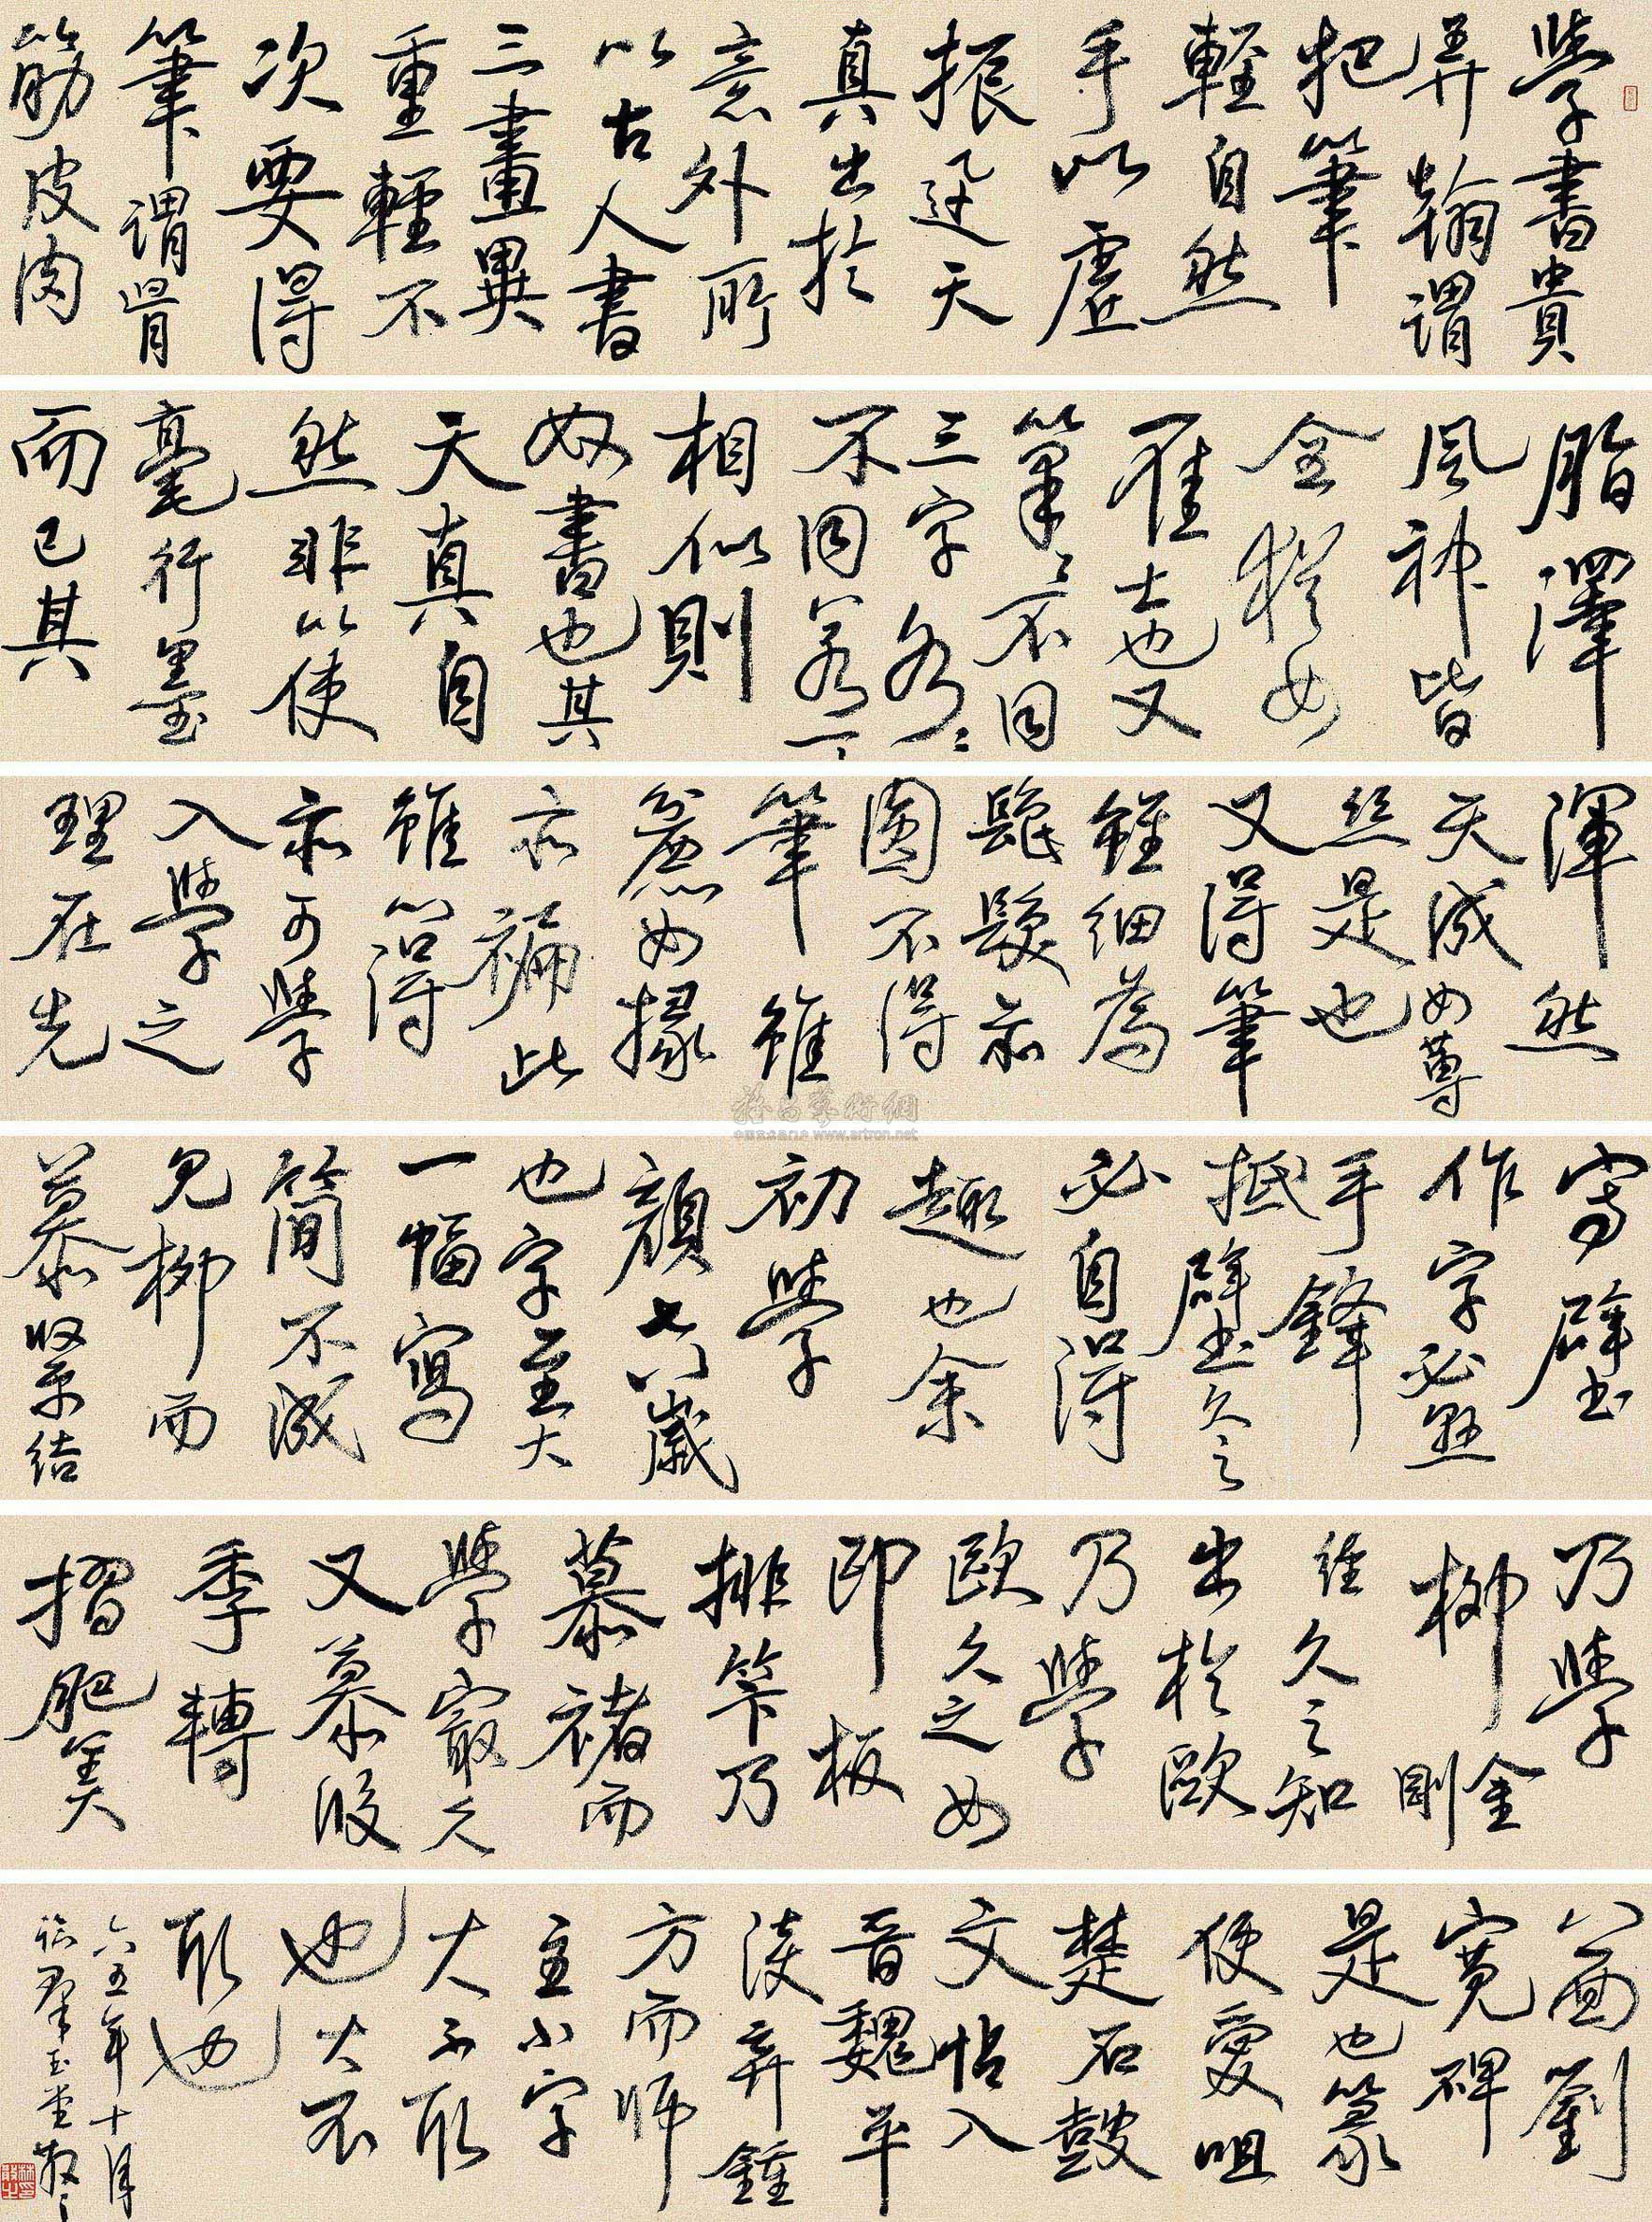 學書貴
弄翰謂
把筆
輕自然
手心虛
振迅天
真出於
意外所
以古人書
三畫異
重輕不
次要得
筆謂骨
筋皮肉
脂澤
風神皆
全猶如
隹士也又
筆筆不同
三字各各
不同若一一
相似則
奴書也其
天真自
然非以使
毫行墨
而已其
渾然
天成如蓴
絲是也
又得筆
雖細為
髭髮亦
圓不得
筆雖
麁如掾
亦褊此
雖心得
亦可學
入學之
理在先
寫壁
作字必懸
手鋒
抵壁久之
必自得
趣也余
初學
顏七八歲
也字至大
一幅寫
簡不成
見柳而
慕緊結
乃學
柳金剛
經久之知
出於歐
乃學
歐久之如
印板
排筭乃
慕褚而
學最久
又慕段
季轉
摺肥美
八面劉
寬碑
是也篆
便愛咀
楚石鼓
文帖入
晉魏平
淡弃鍾
方而師
主小字
大不取
也大不
取也
六五年十月
臨群玉堂散之
www.artron.net